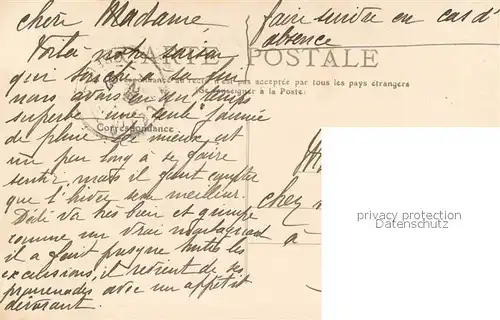 chère Madame
Voilà notre saison
qui touche à sa fin,
nous avons eu un temps
superbe une seule journée
de pluie. Le mieux est
un peu long à se faire
sentir mais il faut compter
que l'hiver sera meilleur.
Dédé va très bien et grimpe
comme un vrai montagnard
il a fait presque toutes les
excursions, il revient de ses
promenades avec un appétit
dévorant.
faire suivre en cas d'
absence
CARTE POSTALE
Correspondance au recto n'est pas acceptée par tous les pays étrangers
(Se renseigner à la Poste)
Correspondance
chez
à
privacy protection
Datenschutz